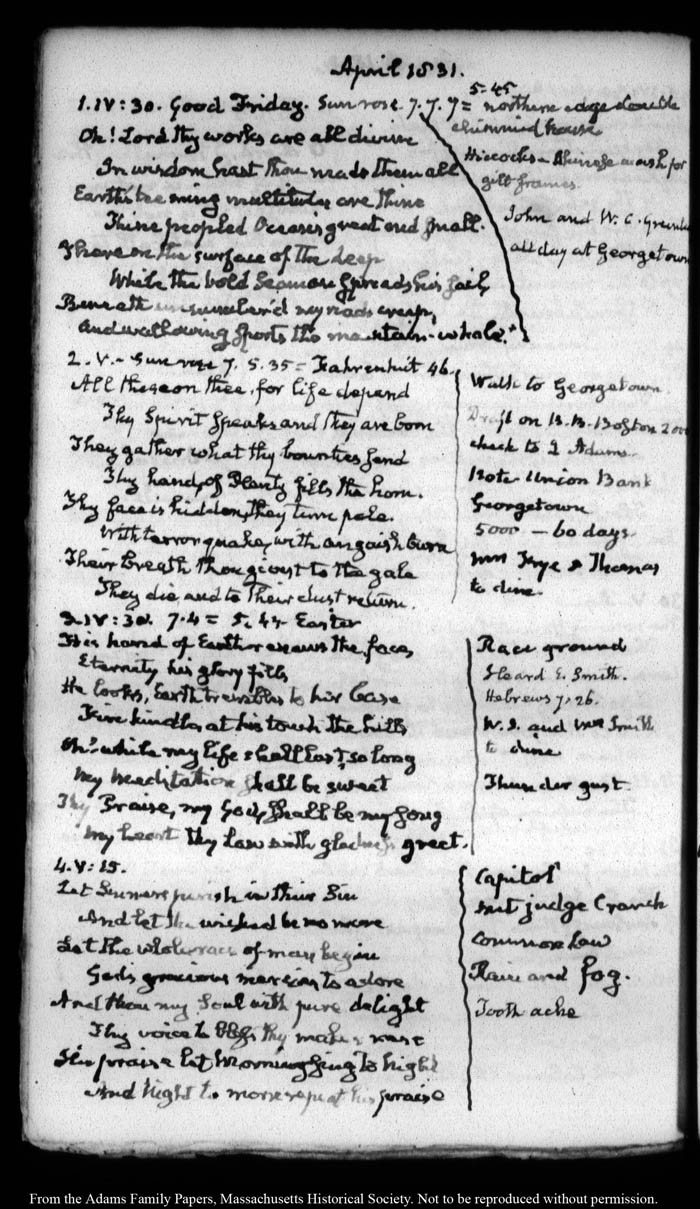 April 1831.
1. IV:30. Good Friday. Sun rose. 7. 7. 7 = 5-45 northine edge double
chimnied house
Oh! Lord thy works are all divine
In wisdom hast thou made them all
Earth's teeming multitudes are thine
Thine peopled Ocean's great and small.
There on the surface of the deep
While the bold Seaman spreads his sail,
Beneath unnumber'd myriads creep,
And wallowing sports the mountain-whale.
Hiccocks - Chinese wash for
gilt frames
John and W. C.
all day at Georgetown
2. V. - Sun rose 7. 5.35 = Fahrenheit 46.
All these on thee, for life depend
Thy Spirit speaks and they are born
They gather what thy bounties send
Thy hand, of Plenty fills the horn.
Thy face is hidden, they turn pale.
With terror quake, with anguish burn
Their breath thou givest to the gale
They die and to their dust return.
Walk to Georgetown.
Draft on B. B. Boston
check to L Adams
Note Union Bank
Georgetown
5000 - 60 days.
Mrs Frye & Thomas
to dine.
3. IV:30. 7.4 = 5.44 Easter
His hand of Earth renews the face,
Eternity his glory fills
He looks, Earth trembles to her base
Fire kindles at his touch the hills
Oh! while my life shall last, so long
My meditation shall be sweet
Thy Praise, my God, shall be my song
My heart thy Law with gladness greet.
Race ground
Heard E. Smith.
Hebrews 7, 26.
W. S. and Mrs Smith
to dine
Thunder gust.
4. V:15.
Let Sinners perish in their Sin
And let the wicked be no more
Let the whole race of man begin
God's gracious mercies to adore
And thou my Soul with pure delight
Thy voice to bless thy maker raise
His praise let Morning sing to Night
And Night to morn repeat his praise
Capitol
met judge Cranch
Common Law
Rain and fog.
Tooth ache
From the Adams Family Papers, Massachusetts Historical Society. Not to be reproduced without permission.